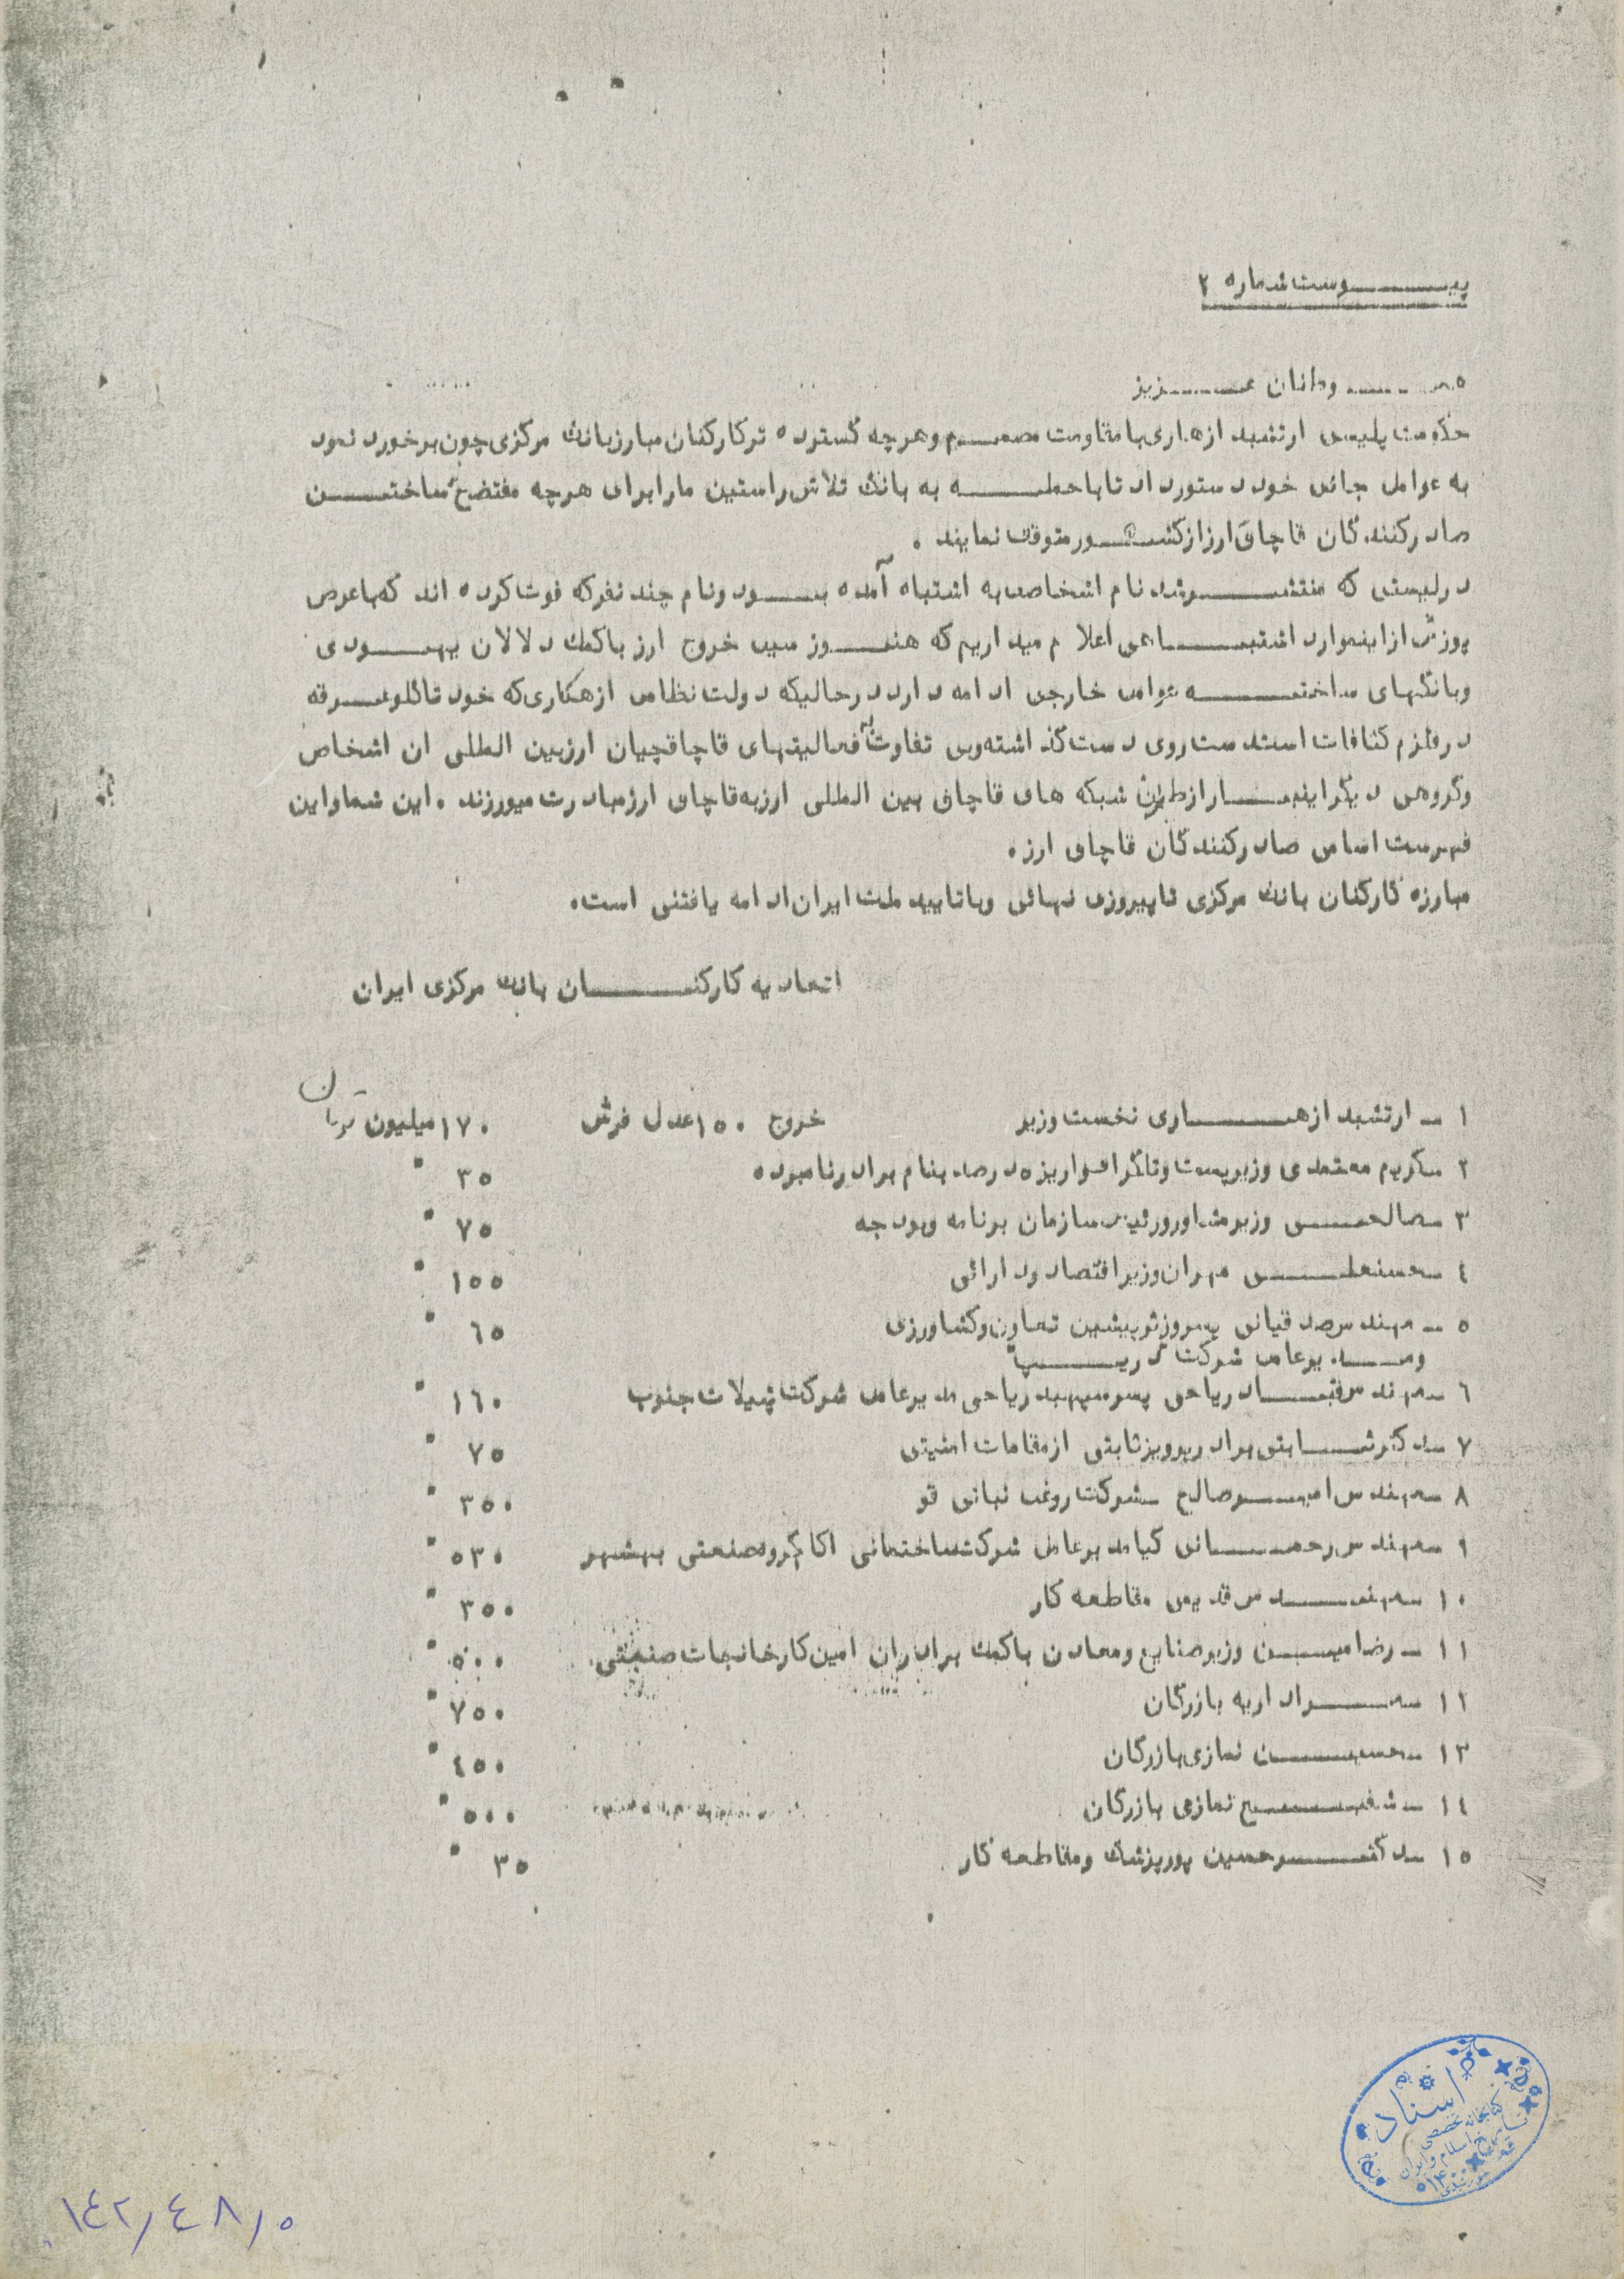 پیوست شماره ۲
هموطنان عزیز
حکومت پلیسی ارتشبد ازهاری با مقاومت مصمم و هرچه گسترده تر کارکنان مبارز بانک مرکزی چون برخورد نمود
به عوامل جانی خود دستور داد تا با حمله به بانک تلاش راستین ما را برای هرچه مفتضح ساختن
صادرکنندگان قاچاق ارز از کشور متوقف نمایند .
در لیستی که منتشر شد نام اشخاصی به اشتباه آمده بود و نام چند نفر که فوت کرده اند که با عرض
پوزش از اینموارد اشتباهی اعلام میداریم که هنوز سیل خروج ارز با کمک دلالان یهودی
و بانکهای ساخته عوامل خارجی ادامه دارد در حالیکه دولت نظامی ازهاری که خود تا گلو غرقه
در قلزم کثافات است دست روی دست گذاشته و بی تفاوت به فعالیتهای قاچاقچیان ارز بین المللی ان اشخاص
و گروهی دیگر اینبار از طریق شبکه های قاچاق بین المللی ارز به قاچاق ارز مبادرت میورزند . این شما و این
فهرست اسامی صادرکنندگان قاچاق ارز .
مبارزه کارکنان بانک مرکزی تا پیروزی نهائی و با تایید ملت ایران ادامه یافتنی است .
اتحادیه کارکنان بانک مرکزی ایران
۱ ـ ارتشبد ازهاری نخست وزیر خروج ۱۵۰ عدل فرش ۱۷۰ میلیون تومان
۲ ـ کریم معتمدی وزیر پست و تلگراف واریزه درصد بنام برادر نامبرده ۳۵ "
۳ ـ صالحی وزیر مشاور و رئیس سازمان برنامه و بودجه ۷۵ "
٤ ـ حسنعلی مهران وزیر اقتصاد و دارائی ۱۵۵ "
۵ ـ مهندس صدقیانی پسر وزیر پیشین تعاون و کشاورزی ٦۵ "
و مدیرعامل شرکت " دریپا "
٦ ـ مهندس قباد ریاحی پسر سپهبد ریاحی مدیرعامل شرکت شیلات جنوب ۱٦۰ "
۷ ـ دکتر ثابتی برادر پرویز ثابتی از مقامات امنیتی ۷۵ "
۸ ـ مهندس امیر صالح ـ شرکت روغن نباتی قو ۳۵۰ "
۹ ـ مهندس رحمانی کیا مدیرعامل شرکت ساختمانی اکام گروه صنعتی بهشهر ۵۳۰ "
۱۰ ـ مهندس قدیمی مقاطعه کار ۳۵۰ "
۱۱ ـ رضا امین وزیر صنایع و معادن با کمک برادران امین کارخانجات صنعتی ۵۰۰ "
۱۲ ـ مراد اریه بازرگان ۷۵۰ "
۱۳ ـ حسین نمازی بازرگان ٤۵۰ "
۱٤ ـ شفیع نمازی بازرگان ۵۰۰ "
۱۵ ـ دکتر حسین پور پزشک و مقاطعه کار ۳۵ "
اسناد
کتابخانه تخصصی
تاریخ اسلام و ایران
۱٤۲ / ٤۸ / ۵